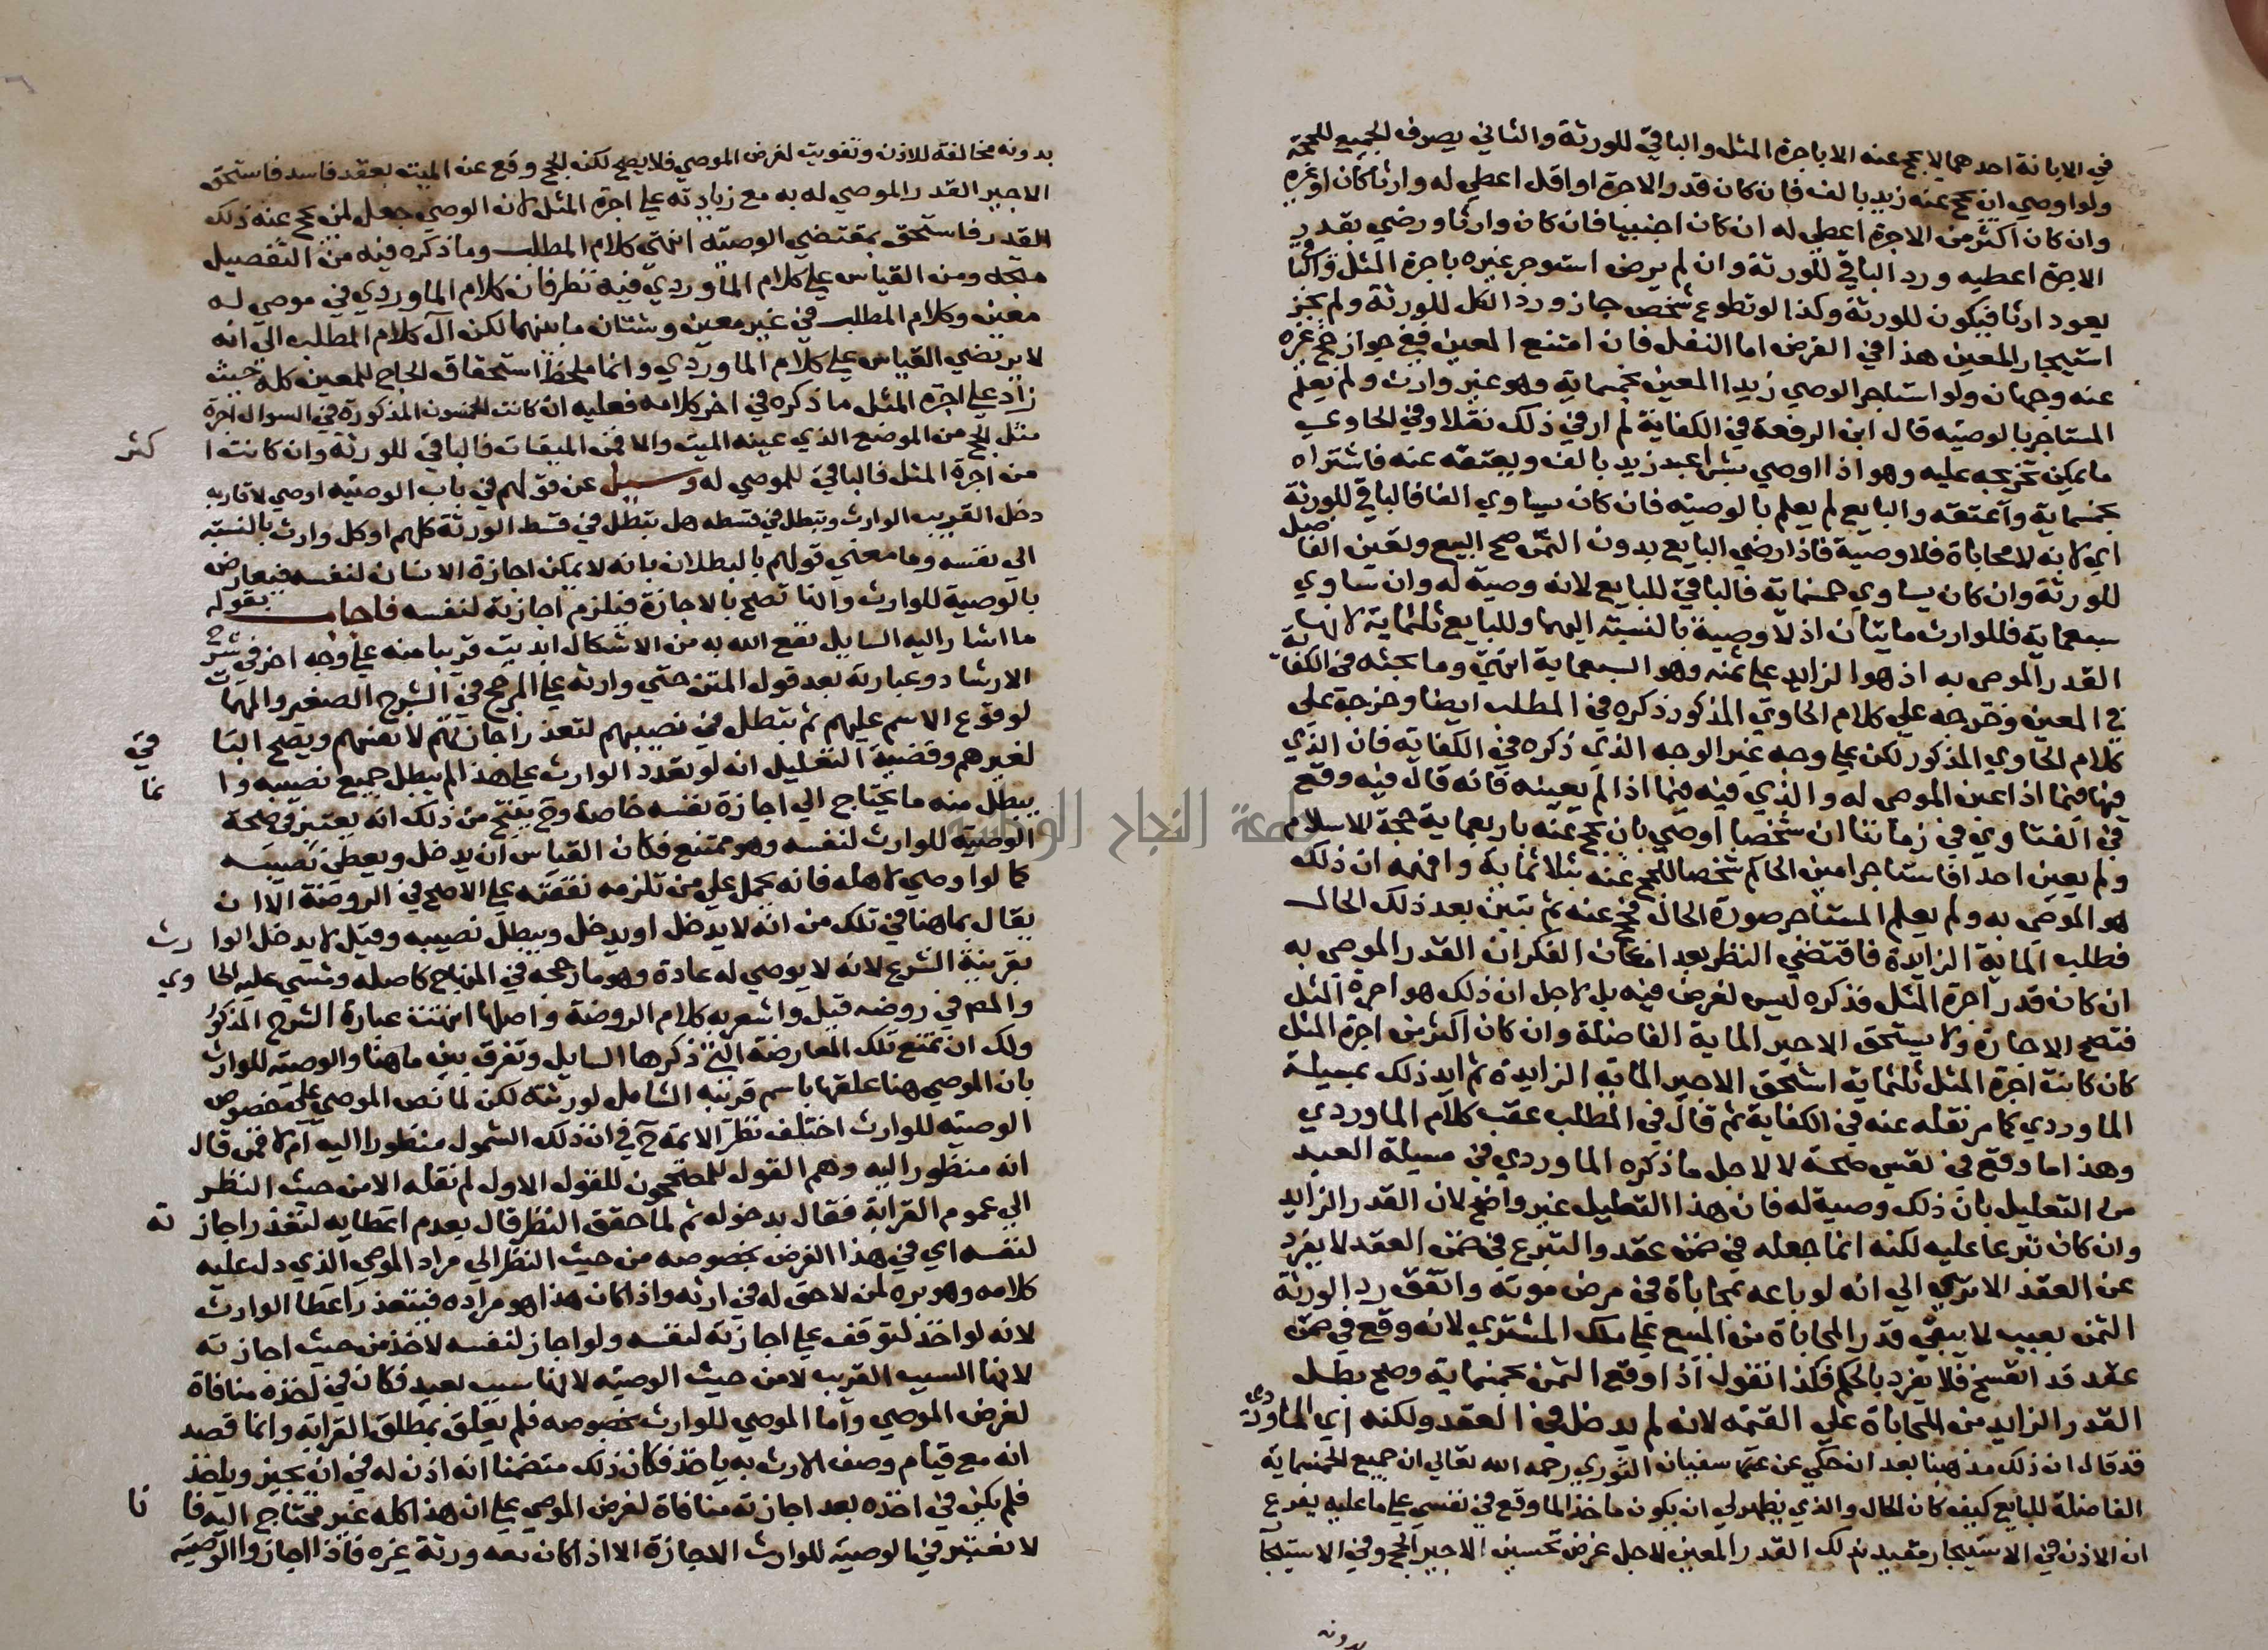 في الابانة احدهما لا يحج عنه الا باجرة المثل والباقي للورثة والثاني يصرف الجميع للحجة
ولو اوصي ان يحج عنه زيد بالف فان كان قدر الاجرة او اقل اعطي له وارثا كان او غيره
وان كان اكثر من الاجرة اعطي له ان كان اجنبيا فان كان وارثا ورضي بقدر
الاجرة اعطيه ورد الباقي للورثة وان لم يرض استوجر غيره باجرة المثل والباقي
يعود ارثا فيكون للورثة وكذا لو تطوع شخص جاز ورد الكل للورثة ولم يجز
استيجار المعين هذا في الفرض اما النفل فان امتنع المعين ففي جواز حج غيره
عنه وجهان ولو استاجر الوصي زيدا المعين بخمسماية وهو غير وارث ولم يعلم
المستاجر بالوصيه قال ابن الرفعة في الكفاية لم ار في ذلك نقلا وفي الحاوي
ما يمكن تخريجه عليه وهو اذا اوصي بشرا عبد زيد بالف ويعتقه عنه فاشتراه
بخمسماية واعتقه والبايع لم يعلم بالوصيه فان كان يساوي الفا فالباقي للورثة
اي لانه لا محاباة فلا وصية فاذا رضي البايع بدون الثمن صح البيع وتعين الفاضل
للورثة وان كان يساوي خمسماية فالباقي للبايع لانه وصية له وان ساوي
سبعماية فللوارث مايتان اذ لا وصية بالنسبة اليهما وللبايع ثلثماية لانها
القدر الموصي به اذ هو الزايد علي ثمنه وهو السبعماية انتهي وما بحثه في الكفاية
في المعين وخرجه علي كلام الحاوي المذكور ذكره في المطلب ايضا وخرجة علي
كلام الحاوي المذكور لكن علي وجه غير الوجه الذي ذكره في الكفاية فان الذي
فيها فيما اذا عين الموصي له والذي فيه فيما اذا لم يعينه فانه قال فيه وقع
في الفتاوي في زماننا ان شخصا اوصي بان يحج عنه باربعماية حجة الاسلام
ولم يعين احدا فاستاجر امين الحاكم شخصا للحج عنه بثلاثماية وافهمه ان ذلك
هو الموصي به ولم يعلم المستاجر صورة الحال فحج عنه ثم تبين بعد ذلك الحال
فطلب الماية الزايدة فاقتضي النظر بعد امعان الفكر ان القدر الموصي به
ان كان قدر اجرة المثل فذكره ليس لغرض فيه بل لاجل ان ذلك هو اجرة المثل
فتصح الاجارة ولا يستحق الاجير الماية الفاضلة وان كان اكثر من اجرة المثل
كان كانت اجرة المثل ثلثماية استحق الاجير الماية الزايدة ثم ايد ذلك بمسيلة
الماوردي كما مر نقله عنه في الكفاية ثم قال في المطلب عقب كلام الماوردي
وهذا اما وقع في نفسي صحته لا لاجل ما ذكره الماوردي في مسيلة العبد
من التعليل بان ذلك وصية له فان هذا التعليل غير واضح لان القدر الزايد
وان كان تبرعا عليه لكنه انما جعله في ضمن عقد والتبرع في ضمن العقد لا يفرد
عن العقد الا تري الي انه لو باعه بمحاباة في مرض موته واتفق رد الورثة
الثمن بعيب لا يبقي قدر المحاباة من المبيع علي ملك المشتري لانه وقع في ضمن
عقد قد انفسخ فلا يفرد بالحكم فكذا نقول اذا وقع الثمن بخمسماية وصح بطل
القدر الزايد من المحاباة علي القيمه لانه لم يدخل في العقد ولكنه اي الماوردي
قد قال ان ذلك مذهبنا بعد ان حكي عن سفيان الثوري رحمه الله تعالي ان جميع الخمسماية
الفاضلة للبايع كيف كان الحال والذي يظهر لي ان يكون ماخذ الما وقع في نفسي علي ما عليه يفرع
ان الاذن في الاستيجار مقيد بذلك القدر المعين لاجل غرض تحسين الاجير الحج وفي الاستيجار
بدونه
بدونه مخالفة للاذن وتفويت لغرض الموصي فلا يصح لكنه الحج وقع عن الميت بعقد فاسد فاستحق
الاجير القدر الموصي له به مع زيادته علي اجرة المثل لان الوصي جعل لمن يحج عنه ذلك
القدر فاستحق بمقتضي الوصية انتهي كلام المطلب وما ذكره فيه من التفصيل
متجه ومن القياس علي كلام الماوردي فيه نظر فان كلام الماوردي في موصي له
معين وكلام المطلب في غير معين وشتان ما بينهما لكن آل كلام المطلب الي انه
لا يرتضي القياس علي كلام الماوردي وانما ملحظ استحقاق الحاج للمعين كله حيث
زاد علي اجرة المثل ما ذكره في اخر كلامه فعليه ان كانت الخمسون المذكورة في السوال اجرة
مثل الحج من الموضع الذي عينه الميت والا فمن الميقات فالباقي للورثة وان كانت اكثر
من اجرة المثل فالباقي للموصي له وسيل عن قولهم في باب الوصيه اوصي لاقاربه
دخل القريب الوارث وتبطل في قسطه هل تبطل في قسط الورثة كلهم او كل وارث بالنسبة
الي نفسه وما معني قولهم بالبطلان بانه لا يمكن اجازة الانسان لنفسه فيعارض
بالوصية للوارث وانها تصح بالاجازة فيلزم اجازته لنفسه فاجاب بقوله
ما اشار اليه السايل نفع الله به من الاشكال ابديت قريبا منه علي وجه اخر في شرح
الارشاد وعبارته بعد قول المتن حتي وارثه علي المرجح في الشرح الصغير والمهمات
لوقوع الاسم عليهم ثم تبطل في نصيبهم لتعذر اجازتهم لانفسهم ويصح الباقي
لغيرهم وقضية التعليل انه لو تعدد الوارث علي هذا لم يبطل جميع نصيبه وانما
يبطل منه ما يحتاج الي اجازة نفسه خاصة وح ينتج من ذلك انه يعتبر في صحة
الوصية للوارث لنفسه وهو ممتنع فكان القياس ان يدخل ويعطي نصيبه
كما لو اوصي لاهله فانه يحمل علي من تلزمه نفقته علي الاصح في الروضة الا ان
يقال بما هنا في تلك من انه لا يدخل او يدخل ويبطل نصيبه وقيل لا يدخل الوارث
بقرينة الشرع لانه لا يوصي له عادة وهو ما رجحه في المنهاج كاصله ومشي عليه الحاوي
والمص في روضه قيل واشعر به كلام الروضة واصلها انتهت عبارة الشرح المذكور
ولك ان تمنع تلك المعارضة التي ذكرها السايل وتفرق بين ما هنا والوصية للوارث
بان الموصي هنا علقها باسم قريبه الشامل لورثته لكن لما نص الموصي علي خصوص
الوصيه للوارث اختلف نظر الايمة ح في ان ذلك الشمول منظورا اليه ام لا فمن قال
انه منظور اليه وهم القول المصححون للقول الاول لم نقله الا من حيث النظر
الي عموم القرابة فقال بدخوله ثم لما حقق النظر قال بعدم اعطايه لتعذر اجازته
لنفسه اي في هذا الفرض بخصوصه من حيث النظر الي مراد الموصي الذي دل عليه
كلامه وهو بره لمن لا حق له في ارثه واذا كان هذا هو مراده فيتعذر اعطا الوارث
لانه لو اخذ لتوقف علي اجازته لنفسه ولو اجاز لنفسه لاخذ من حيث اجازته
لانها السبب القريب لا من حيث الوصية لانها سبب بعيد فكان في اخذه منافاة
لغرض الموصي واما الموصي للوارث بخصوصه فلم يعلق بمطلق القرابة وانما قصد
انه مع قيام وصف الارث به ياخذ فكان ذلك متضمنا انه اذن له في ان يجيز وياخذ
فلم يكن في اخذه بعد اجازته منافاة لغرض الموصي علي ان هذا كله غير محتاج اليه فانا
لا نعتبر في الوصية للوارث الاجازة الا اذا كان معه ورثة غيره فاذا اجازوا الوصية
جامعة النجاح الوطنية